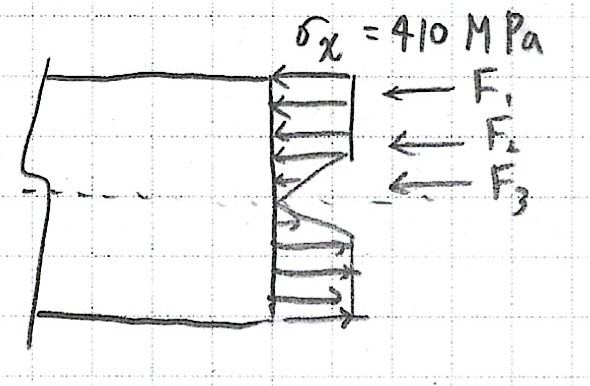 σx = 410 MPa
F1
F2
F3